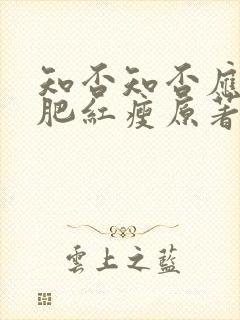 知否知否應
肥紅瘦原著
雲上之藍